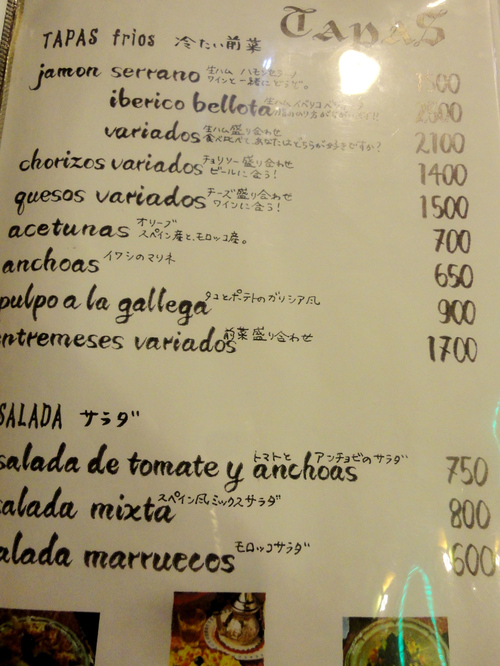 TapaS
TAPAS frios 冷たい前菜
jamon serrano 生ハム ハモンセラーノ
ワインと一緒にどうぞ。
iberico bellota
variados 生ハム盛り合わせ 2100
食べ比べて あなたはどちらが好きですか?
chorizos variados チョリソー盛り合わせ 1400
ビールに合う!
quesos variados チーズ盛り合わせ 1500
ワインに合う!
acetunas オリーブ 700
スペイン産と、モロッコ産。
anchoas イワシのマリネ 650
pulpo a la gallega タコとポテトのガリシア風 900
ntremeses variados 前菜盛り合わせ 1700
SALADA サラダ
salada de tomate y anchoas トマトと アンチョビのサラダ 750
salada mixta スペイン風ミックスサラダ 800
alada marruecos モロッコサラダ 600